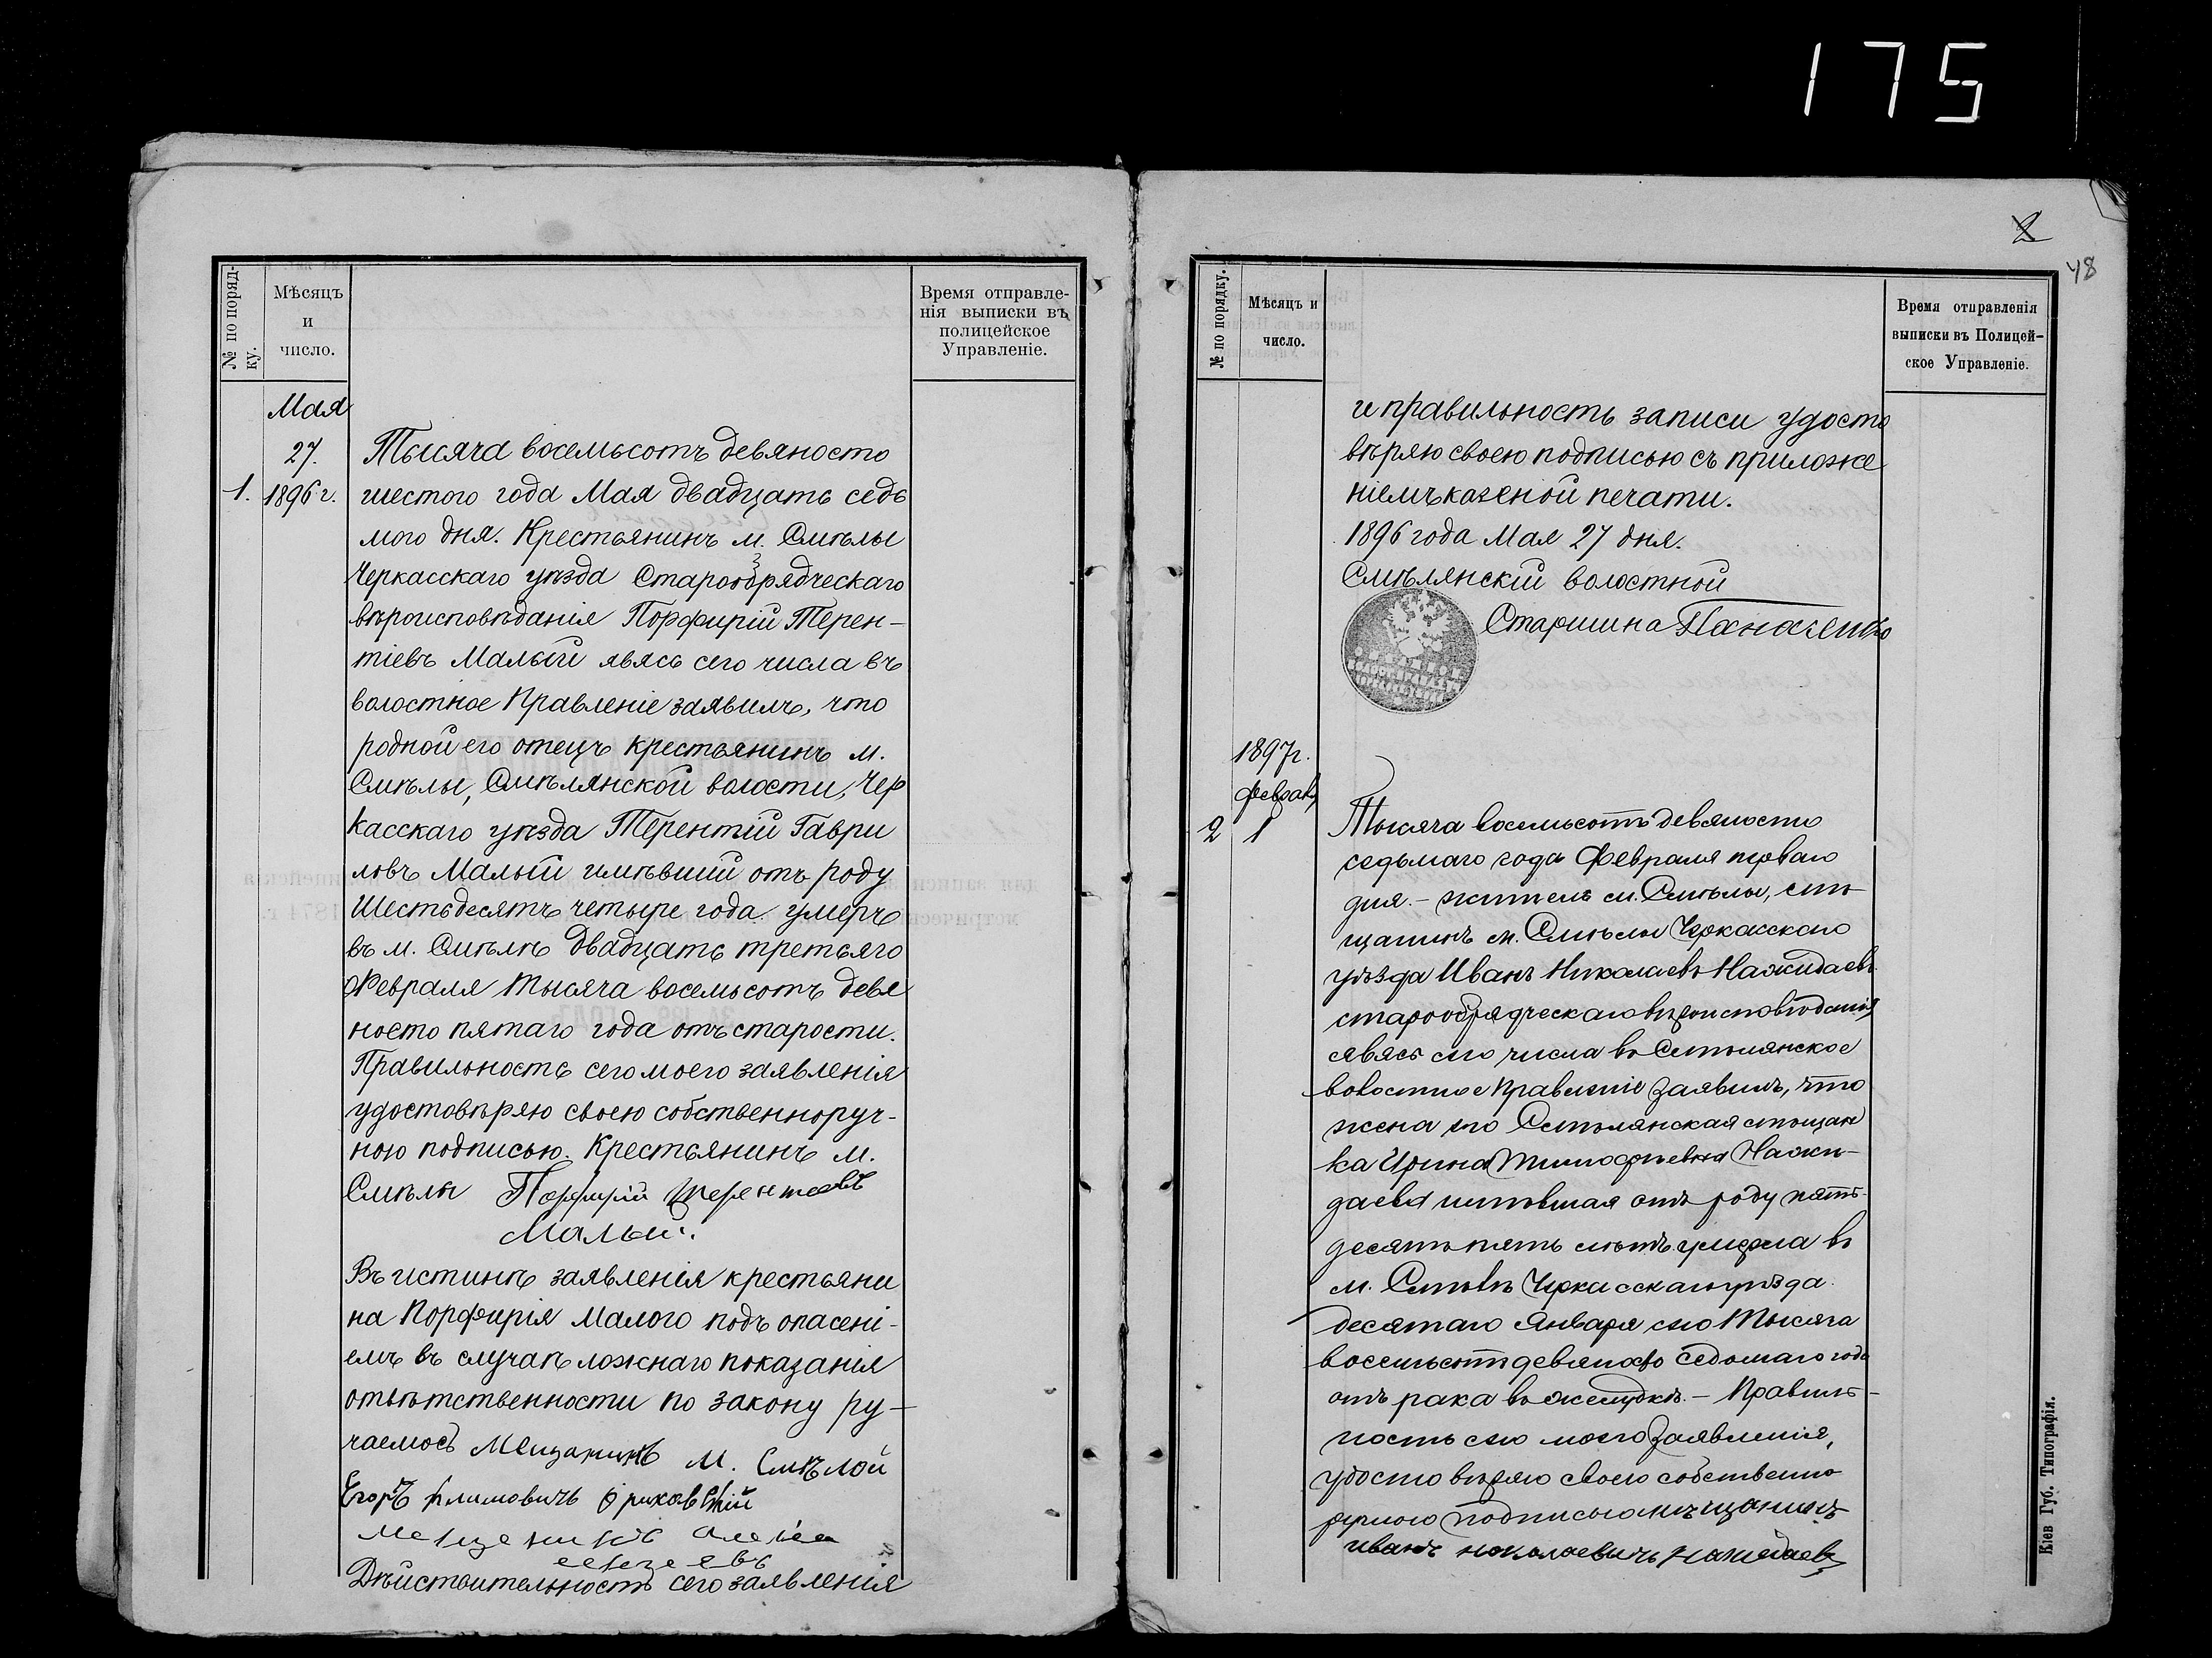 175
№ по поряд-
ку.
Мѣсяцъ
и
число.
Время отправле-
нія выписки въ
полицейское
Управленіе.
Мая
27.
1.
1896 г.
Тысяча восемьсотъ девяносто
шестого года Мая двадцать седь
мого дня. Крестьянинъ м. Смѣлы
Черкасскаго уѣзда Старообрядческаго
вѣроисповѣданія Порфирій Терен-
тіевъ Малый явясь сего числа въ
волостное Правленіе заявилъ, что
родной его отецъ крестьянинъ м.
Смѣлы, Смѣлянской волости, Чер
касскаго уѣзда Терентій Гаври
ловъ Малый имѣвшій отъ роду
Шестьдесятъ четыре года умеръ
въ м. Смѣлѣ двадцать третьяго
Февраля тысяча восемьсотъ девя
носто пятаго года отъ старости.
Правильность сего моего заявленія
удостовѣряю своею собственноруч-
ною подписью. Крестьянинъ м.
Смѣлы Порфирій Терентевъ
Малый.
Въ истинѣ заявленія крестьяни
на Порфирія Малого подъ опасені-
емъ въ случаѣ ложнаго показанія
отвѣтственности по закону ру-
чаемось Мещанинъ М. Смѣлой
Егоръ Климовичъ
Дѣйствительность сего заявленія
2
48
№ по порядку.
Мѣсяцъ и
число.
Время отправленія
выписки въ Полицей-
ское Управленіе.
и правильность записи удосто
вѣряю своею подписью съ приложе
ніемъ казеной печати.
1896 года Мая 27 дня.
Смѣлянскій волостной
Старшина Панасенко
1897г.
Феврал
2
1
Тысяча восемьсотъ девяносто
седьмаго года Февраля перваго
дня. - житель м. Смѣлы, мѣ
щанинъ м. Смѣлы Черкасскаго
уѣзда Иванъ Николаевъ Нажидаевъ
старообрядческаго вѣроисповѣданія
явясь сего числа въ Смѣлянское
волостное Правленіе заявилъ, что
жена его Смѣлянская мѣщан
ка Ирина Тимофѣевна Нажи-
даева имѣвшая отъ роду пять-
десятъ пять лѣтъ умерла въ
м. Смѣлѣ Черкасскаго уѣзда
десятаго Января сего тысяча
восемьсотъ девяносто седьмаго года
отъ рака въ желудкѣ. - Правиль-
ность сего моего заявленія,
удостовѣряю своею собственно
ручною подписью мѣщанинъ
иванъ николаевичъ нажидаевъ
Кіев Губ. Типографія.